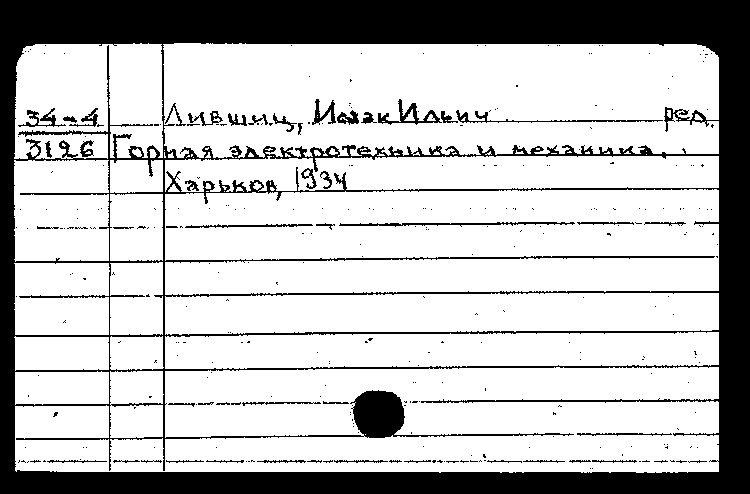 34-4 Лившиц, Исаак Ильич ред.
3126 Горная электротехника и механика.
Харьков, 1934